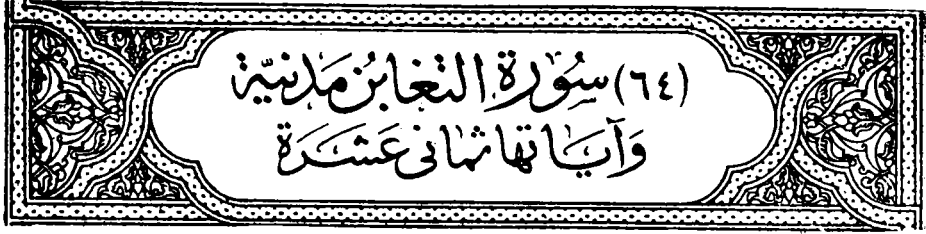 (٦٤) سُورَة التغابن مَدنيّة
وَآيَاتها ثماني عَشَرَة